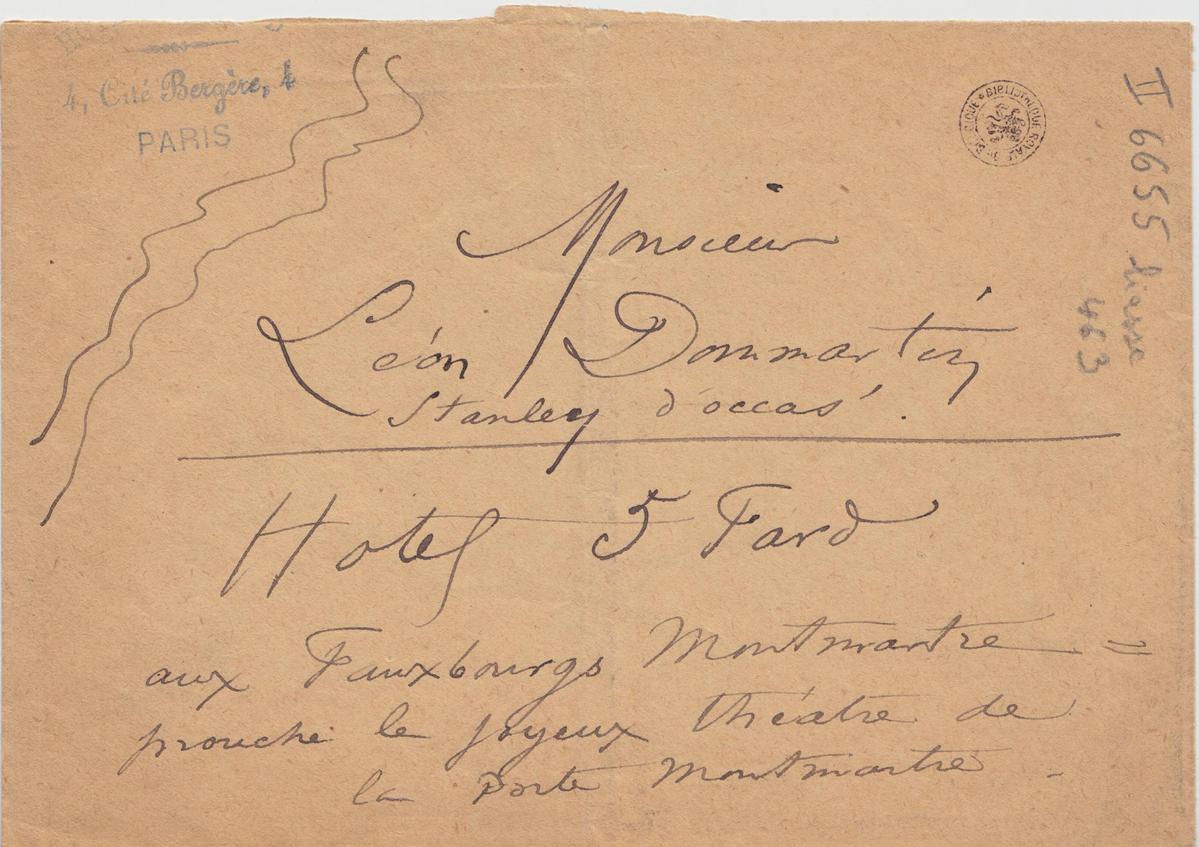 4, Cité Bergère, 4
PARIS
BIBLIOTHEQUE ROYALE DE BELGIQUE
II 6655 liasse
463
Monsieur
Léon Dommartin
Stanley d'occas'.
Hotel 5 Fard
aux Fauxbourgs Montmartre =
prouche le joyeux théâtre de
la porte Montmartre -